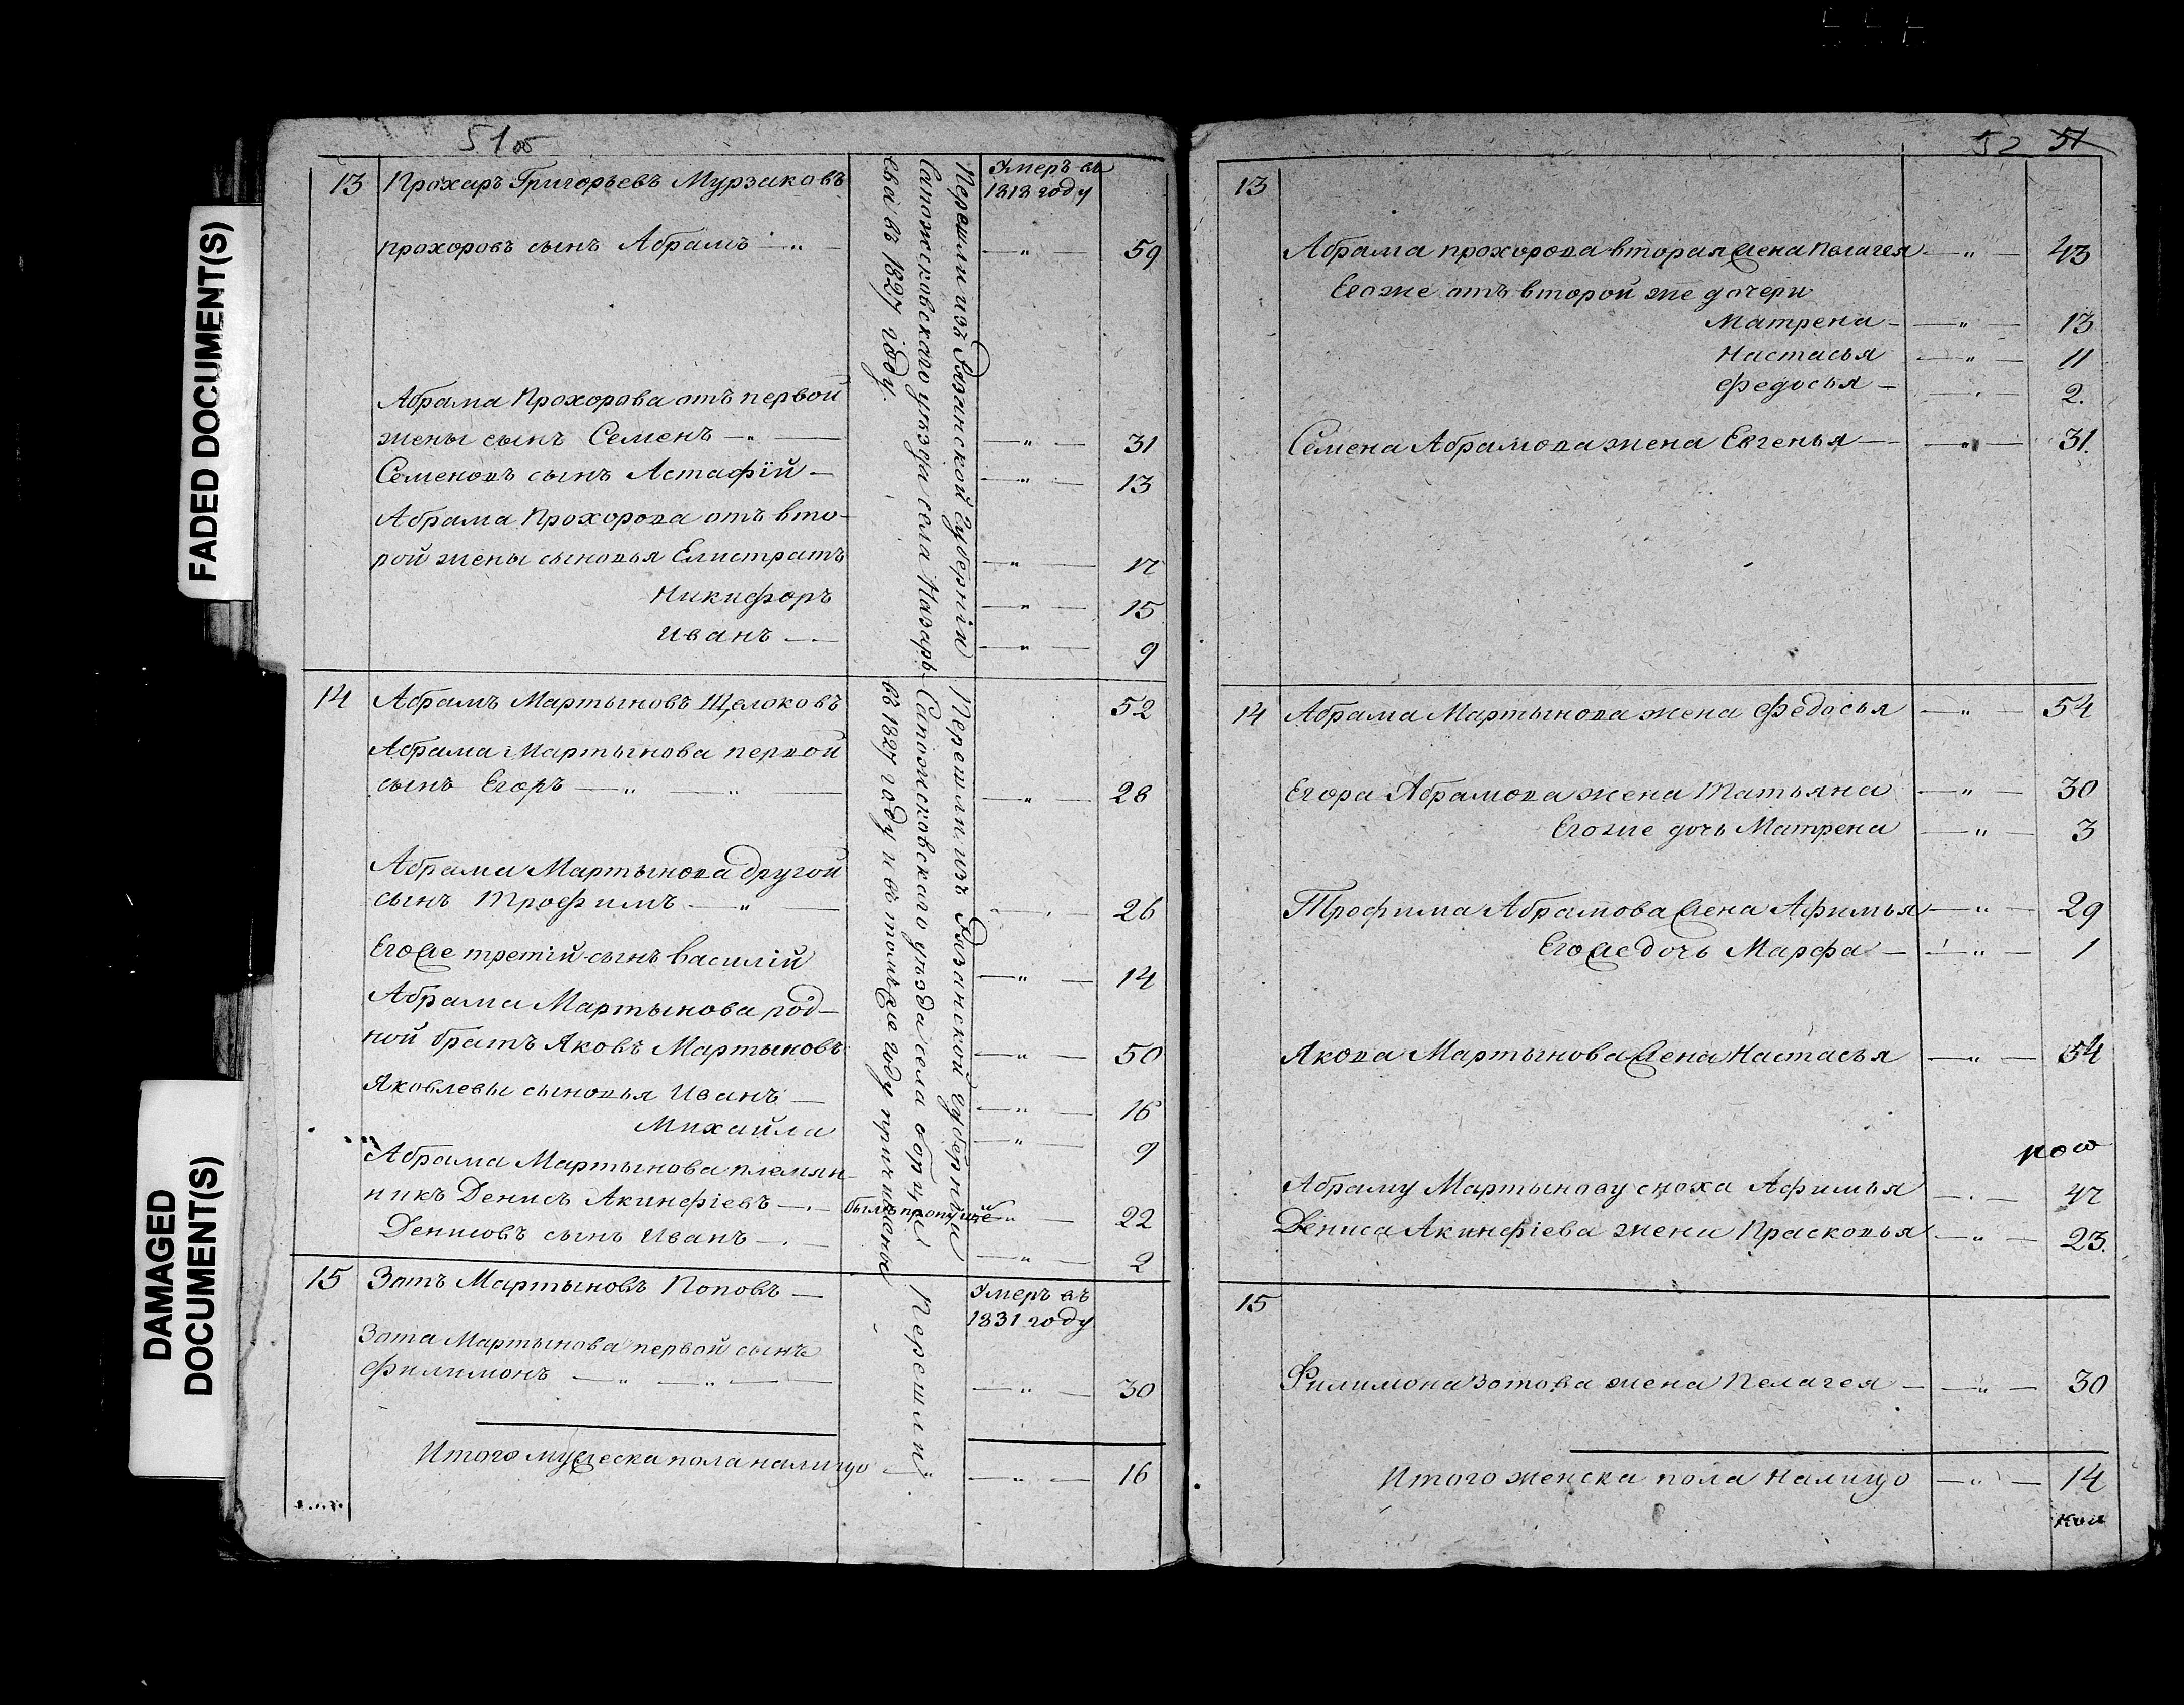 FADED DOCUMENT(S)
DAMAGED
DOCUMENT(S)
51 об
13 Прохаръ Григорьевъ Мурзаковъ
Умеръ въ
1818 году
прохоровъ сынъ Абрамъ — „ — — „ — 59
Абрама Прохорова отъ первой
жены сынъ Семенъ — „ — — „ — 31
Семеновъ сынъ Астафїй — — „ — 13
Абрама Прохорова отъ вто-
рой жены сыновья Елистратъ — „ — 17
Никифоръ — „ — 15
Иванъ — — „ — 9
Перешли изъ Рязинской Губерніи
Сапожсковскаго уѣзда села Назарь-
ева въ 1827 году.
14 Абрамъ Мартыновъ Щелоковъ 52
Абрама Мартынова первой
сынъ Егоръ — „ — „ — — „ — 28
Абрама Мартынова другой
сынъ Трофимъ — „ — — „ — 26
Егоже третій сынъ Василій — „ — 14
Абрама Мартынова род-
ной братъ Яковъ Мартыновъ — „ — 50
Яковлевы сыновья Иванъ — — „ — 16
Михайла — „ — 9
Абрама Мартынова племян-
никъ Денисъ Акинфіевъ — . — былъ пропущѣ — „ — 22
Денисовъ сынъ Иванъ — . — — „ — 2
Перешли изъ Рязанской губерніи
Сапожсковскаго уѣзда села
въ 1827 году и въ томъ же году причислены
15 Зотъ Мартыновъ Поповъ —
Умеръ въ
1831 году
Зота Мартынова первой сынъ
Филимонъ — „ — „ — — — „ — 30
Перешли
Итого мужеска пола налицо — „ — — „ — 16
52 51
13
Абрама прохорова вторая жена Пелагея — „ — 43
Егоже отъ второй же дочери
Матрена — — „ — 13
Настасья — „ — 11
Федосья — — „ — 2.
Семена Абрамова жена Евгенья — — „ — 31.
14 Абрама Мартынова жена Федосья — „ — 54
Егора Абрамова жена Татьяна — „ — 30
Егоже дочь Матрена — „ — 3
Трофима Абрамова жена Афимья — „ — 29
Егоже дочь Марфа — — „ — 1
Якова Мартынова жена Настасья — „ — 54
Абраму Мартынову сноха Афимья — . — 47
Дениса Акинфіева жена Прасковья — „ — 23.
15
Филимона Зотова жена Пелагея — — „ — 30
Итого женска пола налицо — „ — 14